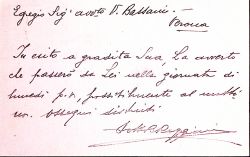 Egregio Sig. avvto V. Bassani.
Verona
In esito a gradita Sua, La avverto
che passerò da Lei nella giornata di
lunedì p.v., possibilmente al
ossequi distinti